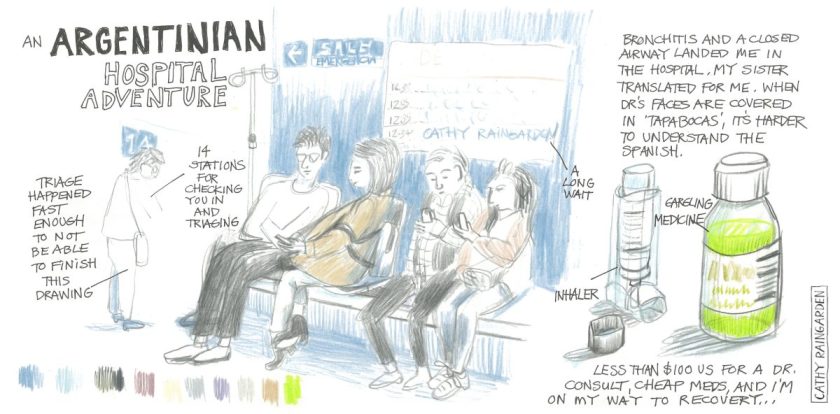 AN ARGENTINIAN
HOSPITAL
ADVENTURE
14
STATIONS
FOR
CHECKING
YOU IN
AND
TRIAGING
TRIAGE
HAPPENED
FAST
ENOUGH
TO NOT
BE ABLE
TO FINISH
THIS
DRAWING
SALE
EMERGENCIA
DE
12:34
CATHY RAINGARDEN
A
LONG
WAIT
BRONCHITIS AND A CLOSED
AIRWAY LANDED ME IN
THE HOSPITAL. MY SISTER
TRANSLATED FOR ME. WHEN
DR'S FACES ARE COVERED
IN 'TAPABOCAS', IT'S HARDER
TO UNDERSTAND THE
SPANISH.
GARGLING
MEDICINE
INHALER
LESS THAN $100 US FOR A DR.
CONSULT, CHEAP MEDS, AND I'M
ON MY WAY TO RECOVERY...
CATHY RAINGARDEN